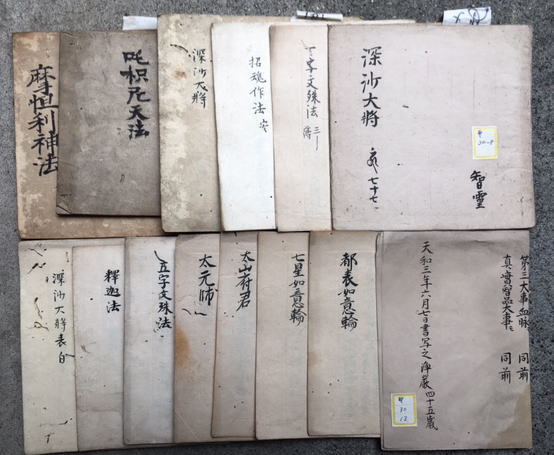 摩怛利神法
吒枳尼天法
深沙大将
招魂作法
文殊法
深沙大将
七十七
智霊
30-8
深沙大将表白
釋迦法
五字文殊法
太元師
太山府君
七星如意輪
都表如意輪
第三大事血脉 同前
真實智品大事 同前
天和三年六月七日書写之 浄厳四十五歳
30
12